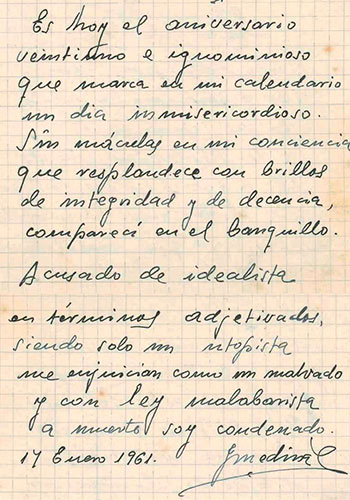 Es hoy el aniversario
veintiuno e ignominioso
que marca en mi calendario
un dia inmisericordioso.
Sin máculas en mi conciencia
que resplandece con brillos
de integridad y de decencia,
comparecí en el banquillo.
Acusado de idealista
en términos adjetivados,
siendo solo un utopista
me enjuician como un malvado
y con ley malabarista
a muerte soy condenado.
17 Enero 1961. Jmedinal